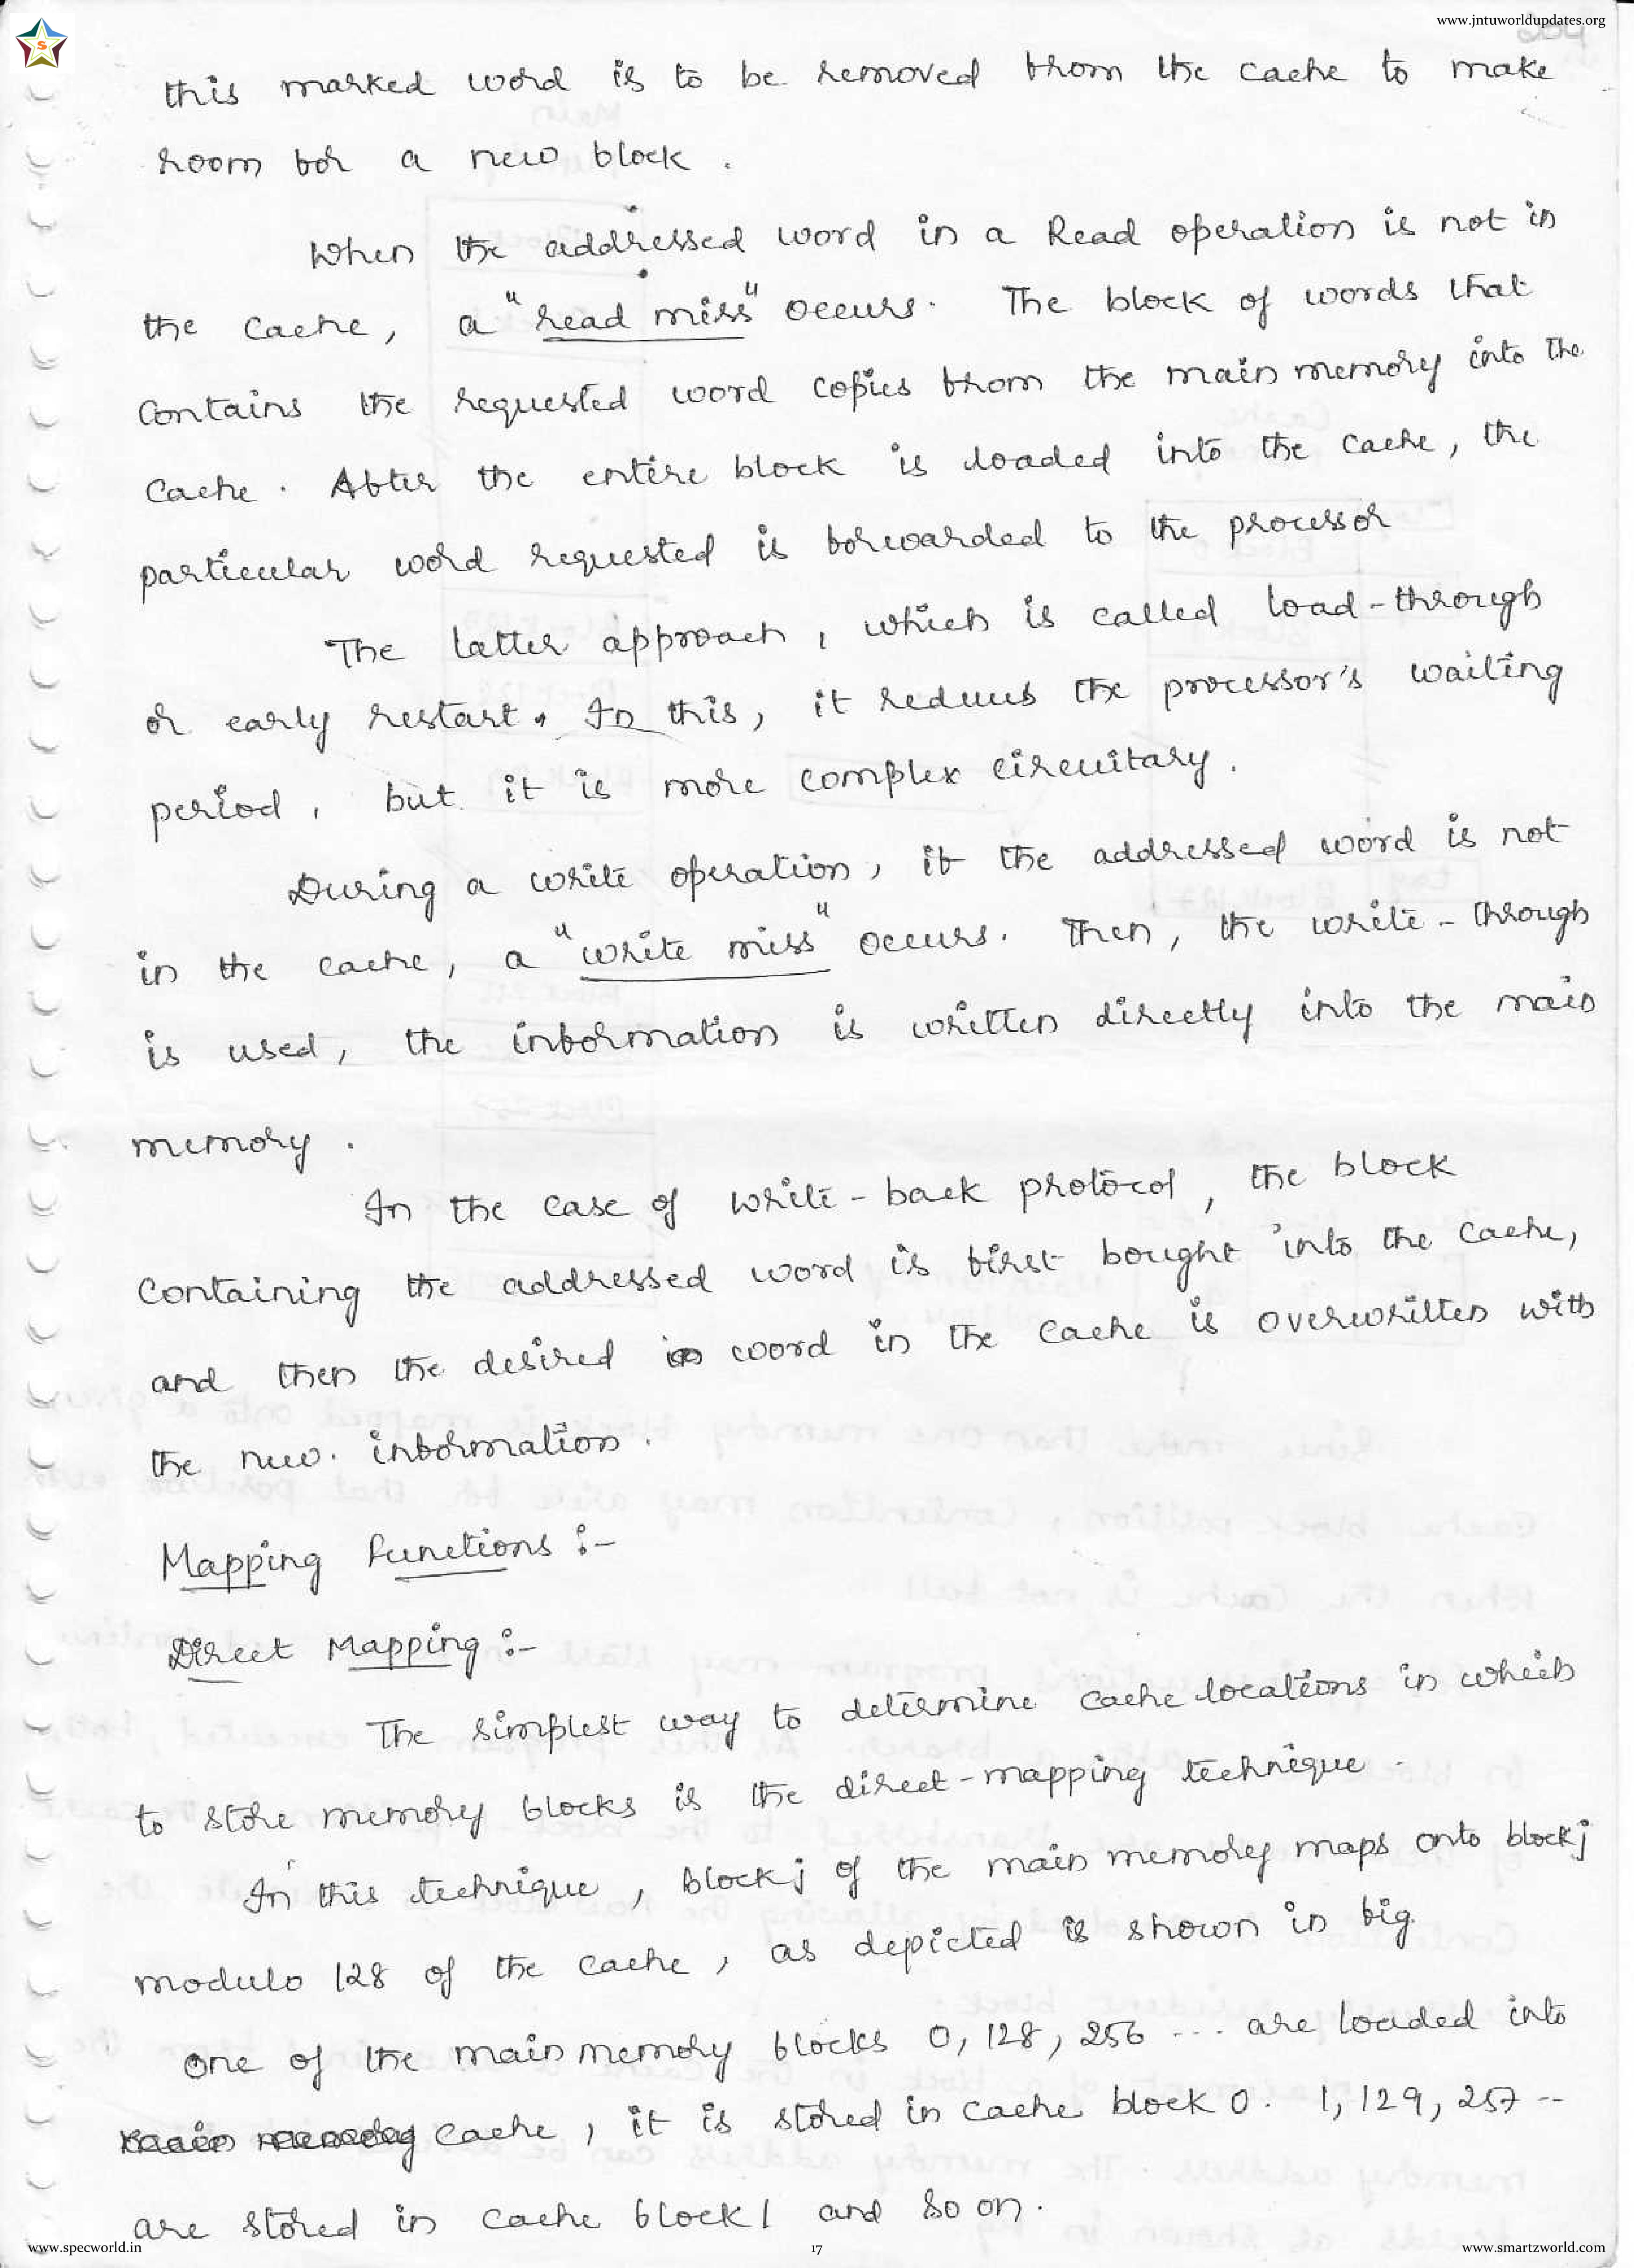 www.jntuworldupdates.org
S
this marked word is to be removed from the cache to make
room for a new block .
When the addressed word in a Read operation is not in
the cache, a "read miss" occurs. The block of words that
contains the requested word copies from the main memory into the
cache . After the entire block is loaded into the cache, the
particular word requested is forwarded to the processor
The latter approach, which is called load-through
or early restart. In this, it reduces the processor's waiting
period, but it is more complex circuitary.
During a write operation, if the addressed word is not
in the cache, a "write miss" occurs. Then, the write-through
is used, the information is written directly into the main
memory .
In the case of write-back protocol, the block
containing the addressed word is first bought into the cache,
and then the desired word in the cache is overwritten with
the new. information.
Mapping Functions :-
Direct Mapping :-
The simplest way to determine cache locations in which
to store memory blocks is the direct-mapping technique.
In this technique, block j of the main memory maps onto block j
modulo 128 of the cache, as depicted is shown in fig.
one of the main memory blocks 0, 128, 256 ... are loaded into
cache, it is stored in cache block 0. 1, 129, 257 --
are stored in cache block 1 and so on.
www.specworld.in 17 www.smartzworld.com